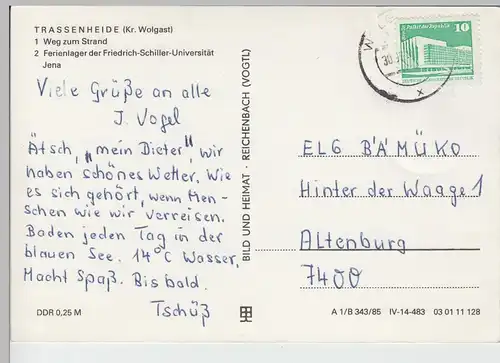 TRASSENHEIDE (Kr. Wolgast)
1 Weg zum Strand
2 Ferienlager der Friedrich-Schiller-Universität
Jena
Viele Grüße an alle
J. Vogel
Ätsch, „mein Dieter", wir
haben schönes Wetter. Wie
es sich gehört, wenn Men-
schen wie wir verreisen.
Baden jeden Tag in der
blauen See. 14°C Wasser,
Macht Spaß. Bis bald.
Tschüß
DDR 0,25 M
BILD UND HEIMAT · REICHENBACH (VOGTL)
10
W
30.
x
ELG BÄMÜKO
Hinter der Waage 1
Altenburg
7400
A 1/B 343/85 IV-14-483 03 01 11 128